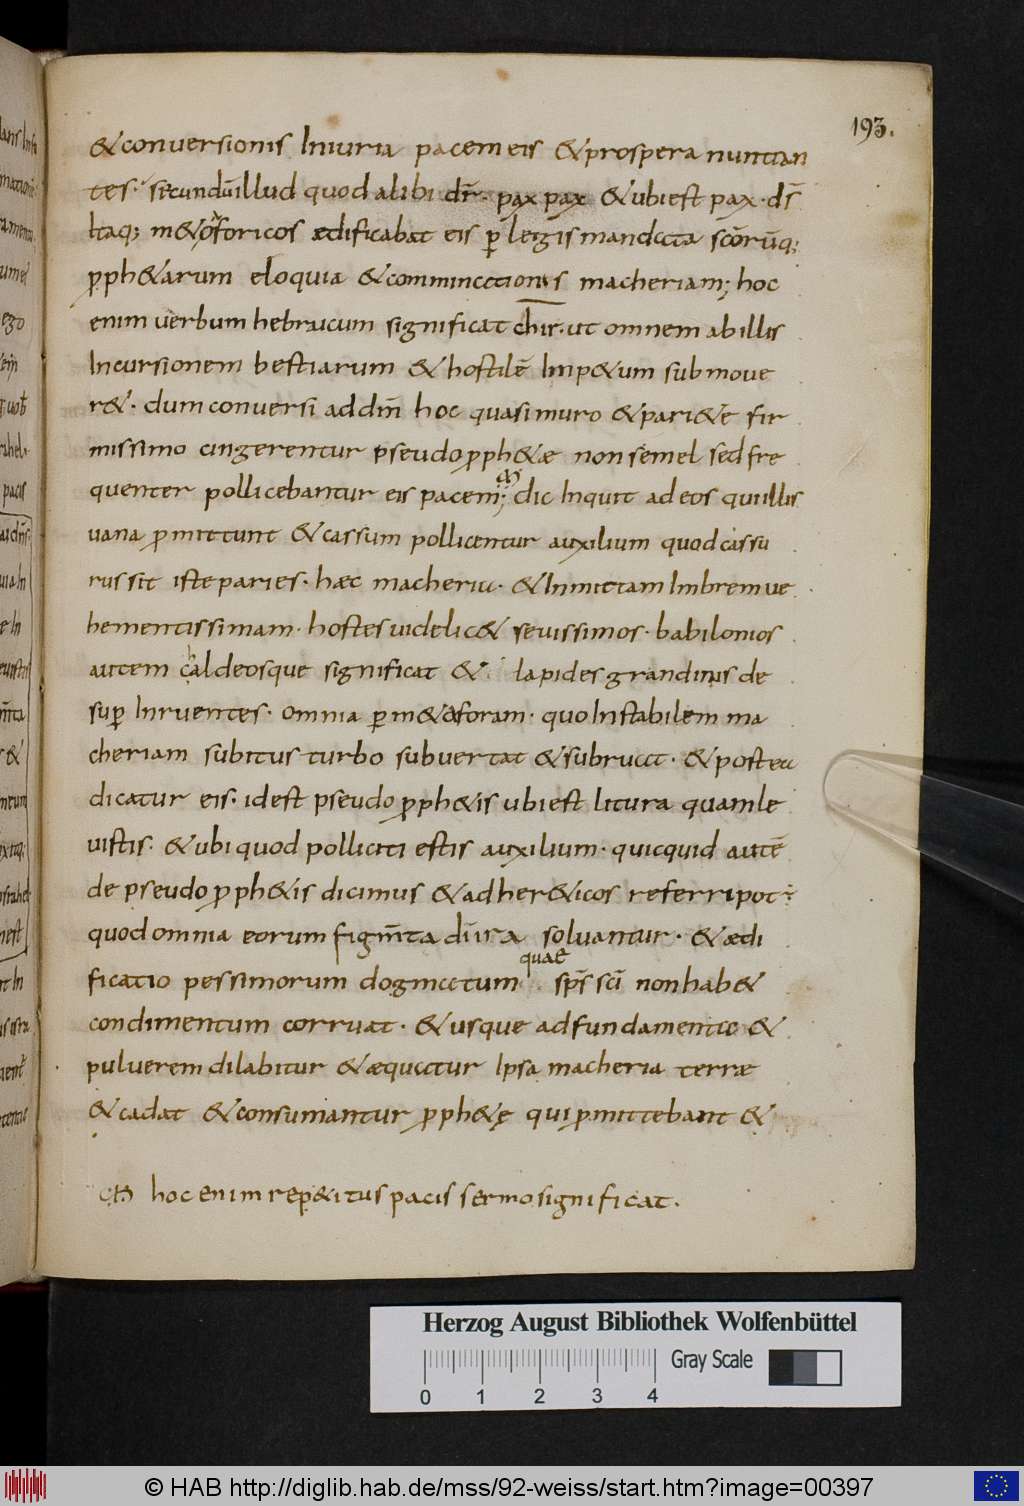 193.
& conversionis Iniuria pacem eis & prospera nuntian
tes. secundū illud quod alibi dr̄. pax pax & ubi est pax. ds̄
Itaq; m&aforicos aedificabat eis ꝑ legis mandata scōrūq;
ꝓph&arum eloquia & comminationis macheriam; hoc
enim verbum hebraicum significat chir. ut omnem ab illis
Incursionem bestiarum & hostilē Imp&um submove
r&. dum conversi ad dm̄ hoc quasi muro & pari&e fir
missimo cingerentur pseudoꝓph&ae non semel sed fre
quenter pollicebantur eis pacem; dic Inquit ad eos qui illis
uana ꝓmittunt & cassum pollicentur auxilium quod cassu
rus sit iste paries. haec macheria. & Inmittam Imbrem ve
hementissimam. hostes videlic& sevissimos. babilonios
autem chaldeosque significat & lapides grandinis de
suꝑ Inruentes. omnia ꝑ m&aforam. quo Instabilem ma
cheriam subitus turbo subvertat & subruat. & postea
dicatur eis. id est pseudoꝓph&is ubi est litura quam le
vistis. & ubi quod polliciti estis auxilium. quicquid autē
de pseudoꝓph&is dicimus & ad her&icos referri pot.
quod omnia eorum figm̄ta dīra solvantur. & aedi
ficatio pessimorum dogmatum quae sps̄ sci̅ non hab&
condimentum corruat. & usque ad fundamenta &
pulverem dilabitur & aequatur Ipsa macheria terrae
& cadat & consumantur ꝓph&ę qui ꝓmittebant &
hoc enim rep&itus pacis sermo significat.
Herzog August Bibliothek Wolfenbüttel
Gray Scale
0 1 2 3 4
© HAB http://diglib.hab.de/mss/92-weiss/start.htm?image=00397